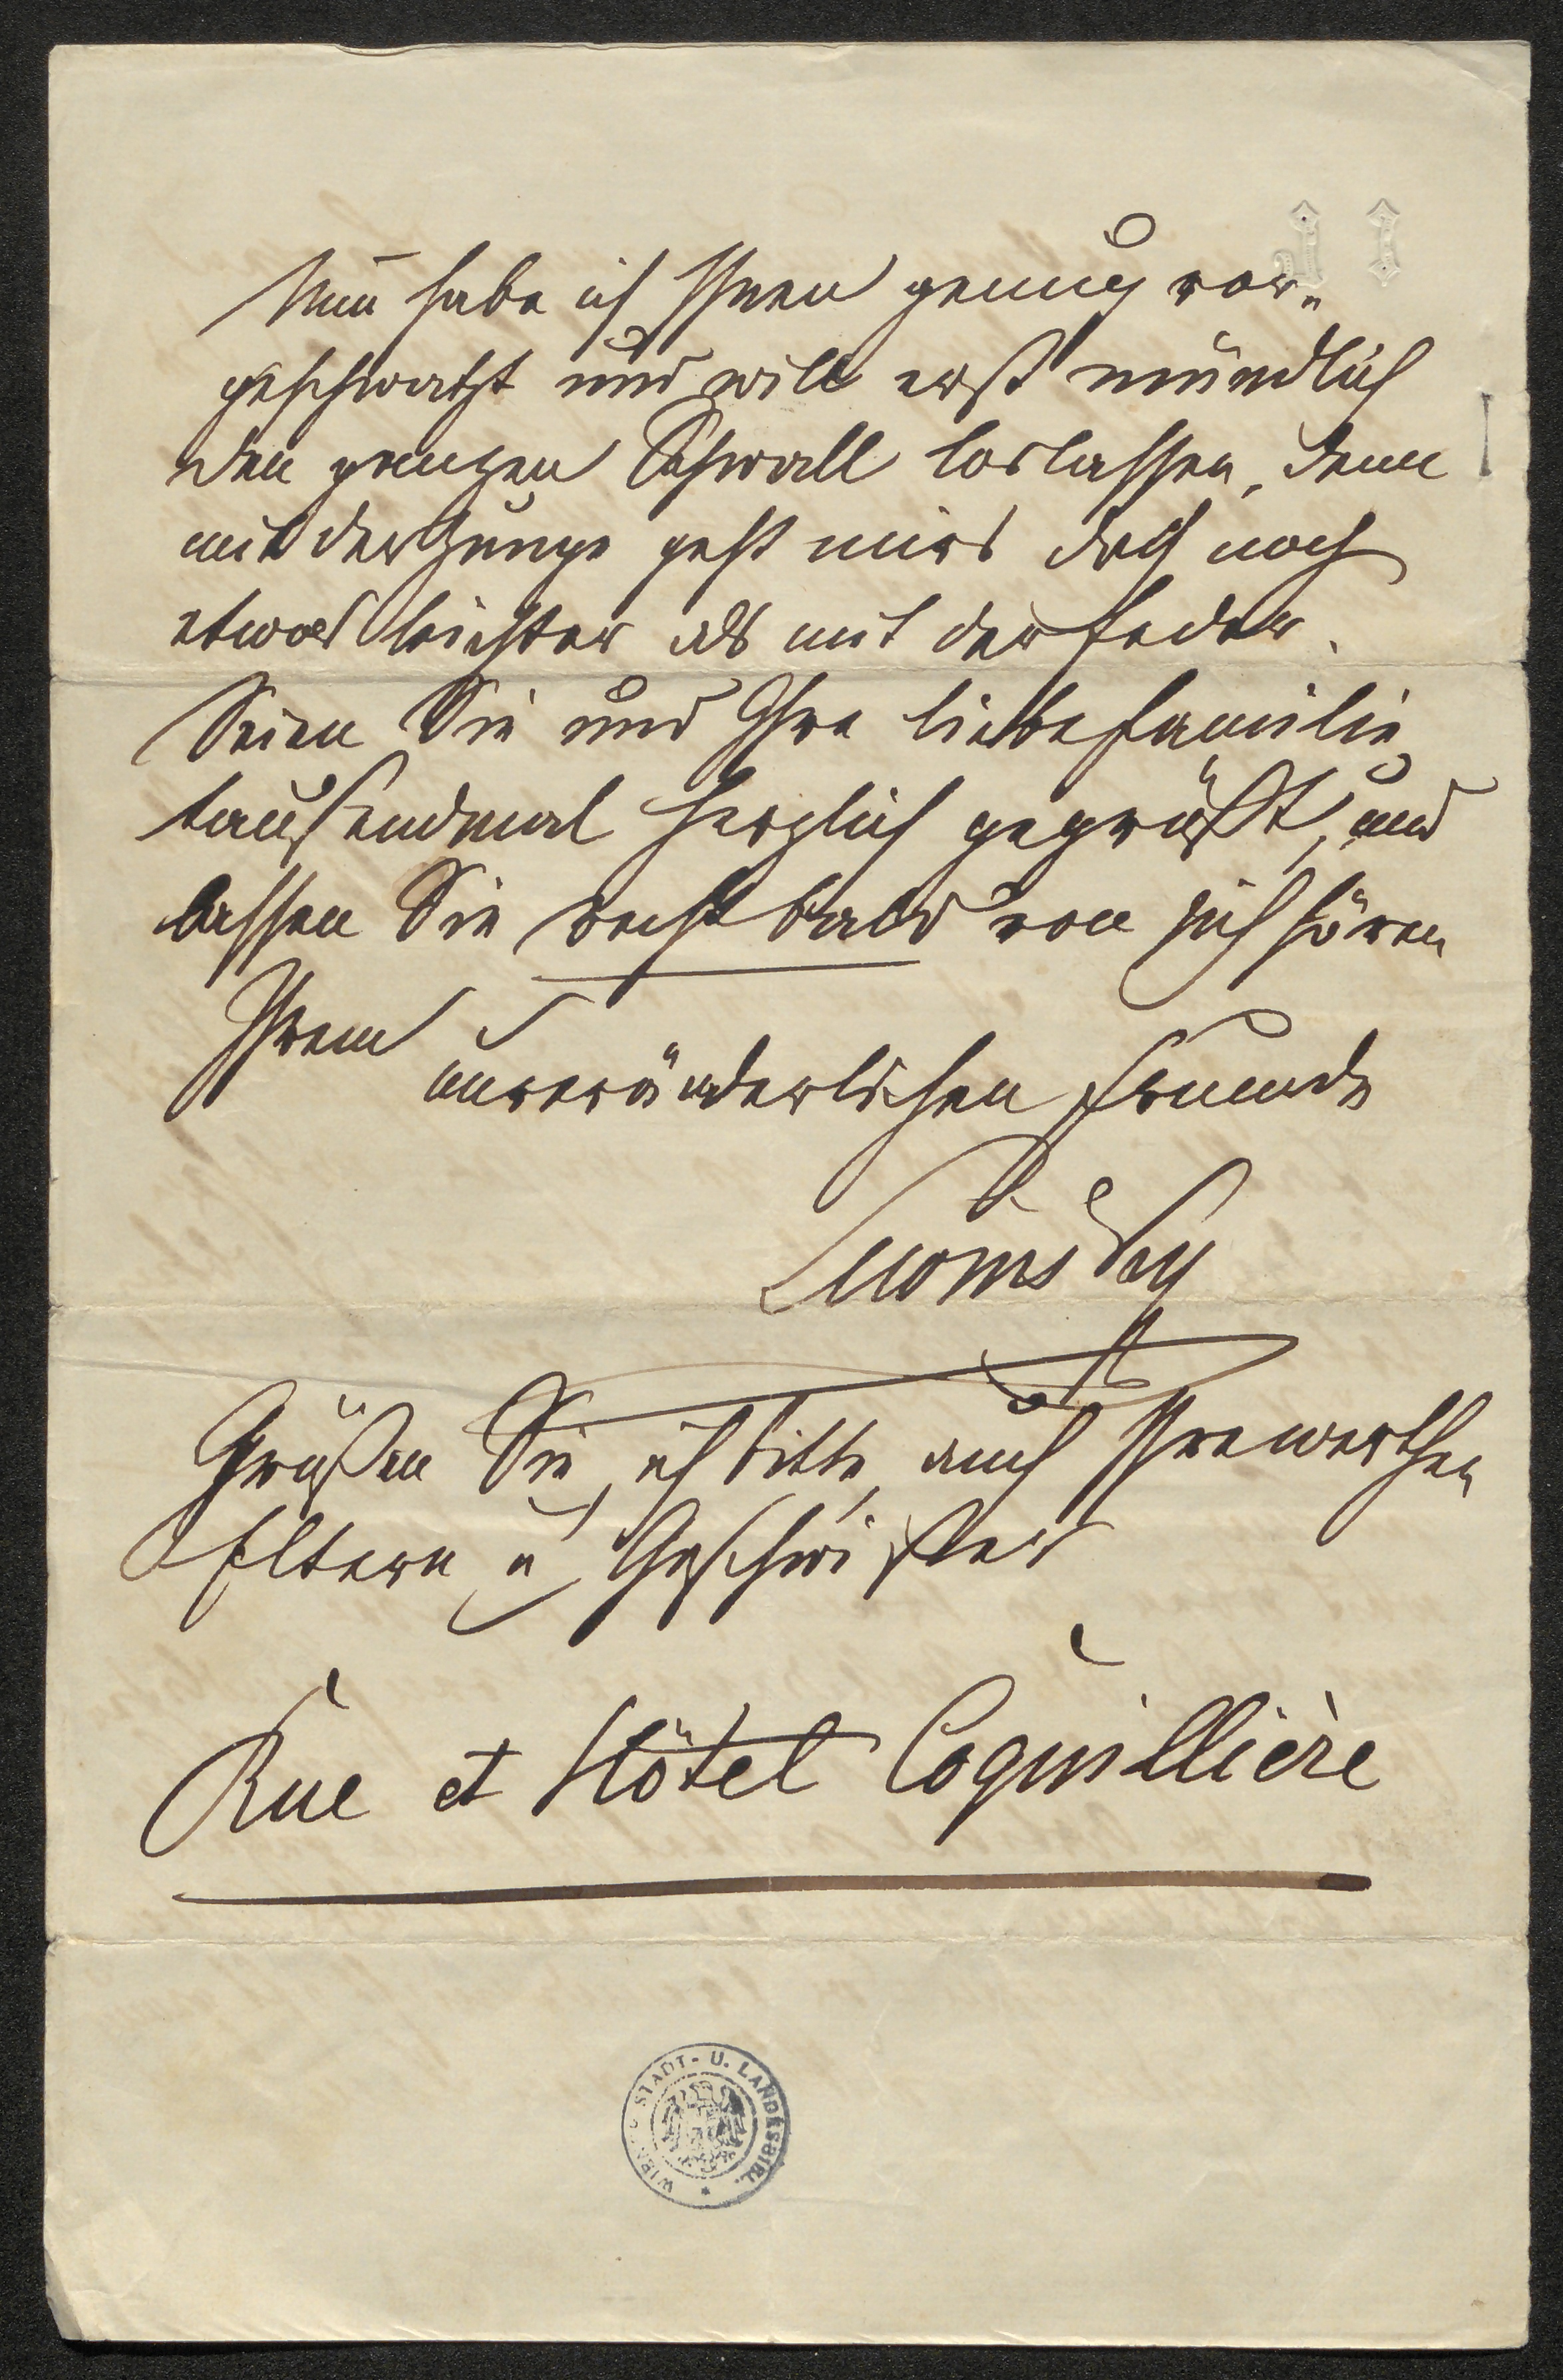 Nun habe ich Ihnen genug vor-
geschwatzt und will erst mündlich
den ganzen Schwall loslassen, denn
mit der Zunge geht mirs doch noch
etwas leichter als mit der Feder.
Seien Sie und Ihre liebe Familie
tausendmal herzlich gegrüßt, und
lassen Sie recht bald von sich hören
Ihrem
unveränderlichen Freunde
Grüßen Sie, ich bitte, auch Ihre werthen
Eltern u Geschwister
Rue et Hôtel Coquillière
STADT- U. LANDESBIBL.